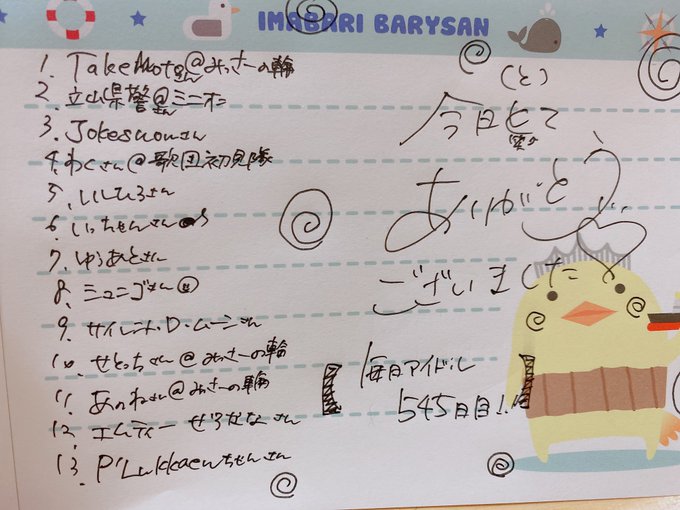 IMABARI BARYSAN
1. Takemotoさん@みっさーの輪
2. 立山県警さん@ミニオン
3. Jokesuonさん
4. わくさん@歌団初見隊
5. いしひろさん
6. いっちゃんさん
7. ゆうあとさん
8. シュニゴさん
9. サイレント・D・ムーンさん
10. せとっちさん@みっさーの輪
11. あのねさん@みっさーの輪
12. エムティーせろななさん
13. P'Lukkaewちゃんさん
(と)
今日とて
ありがとう
ございました
【毎日アイドル
545日目!!】